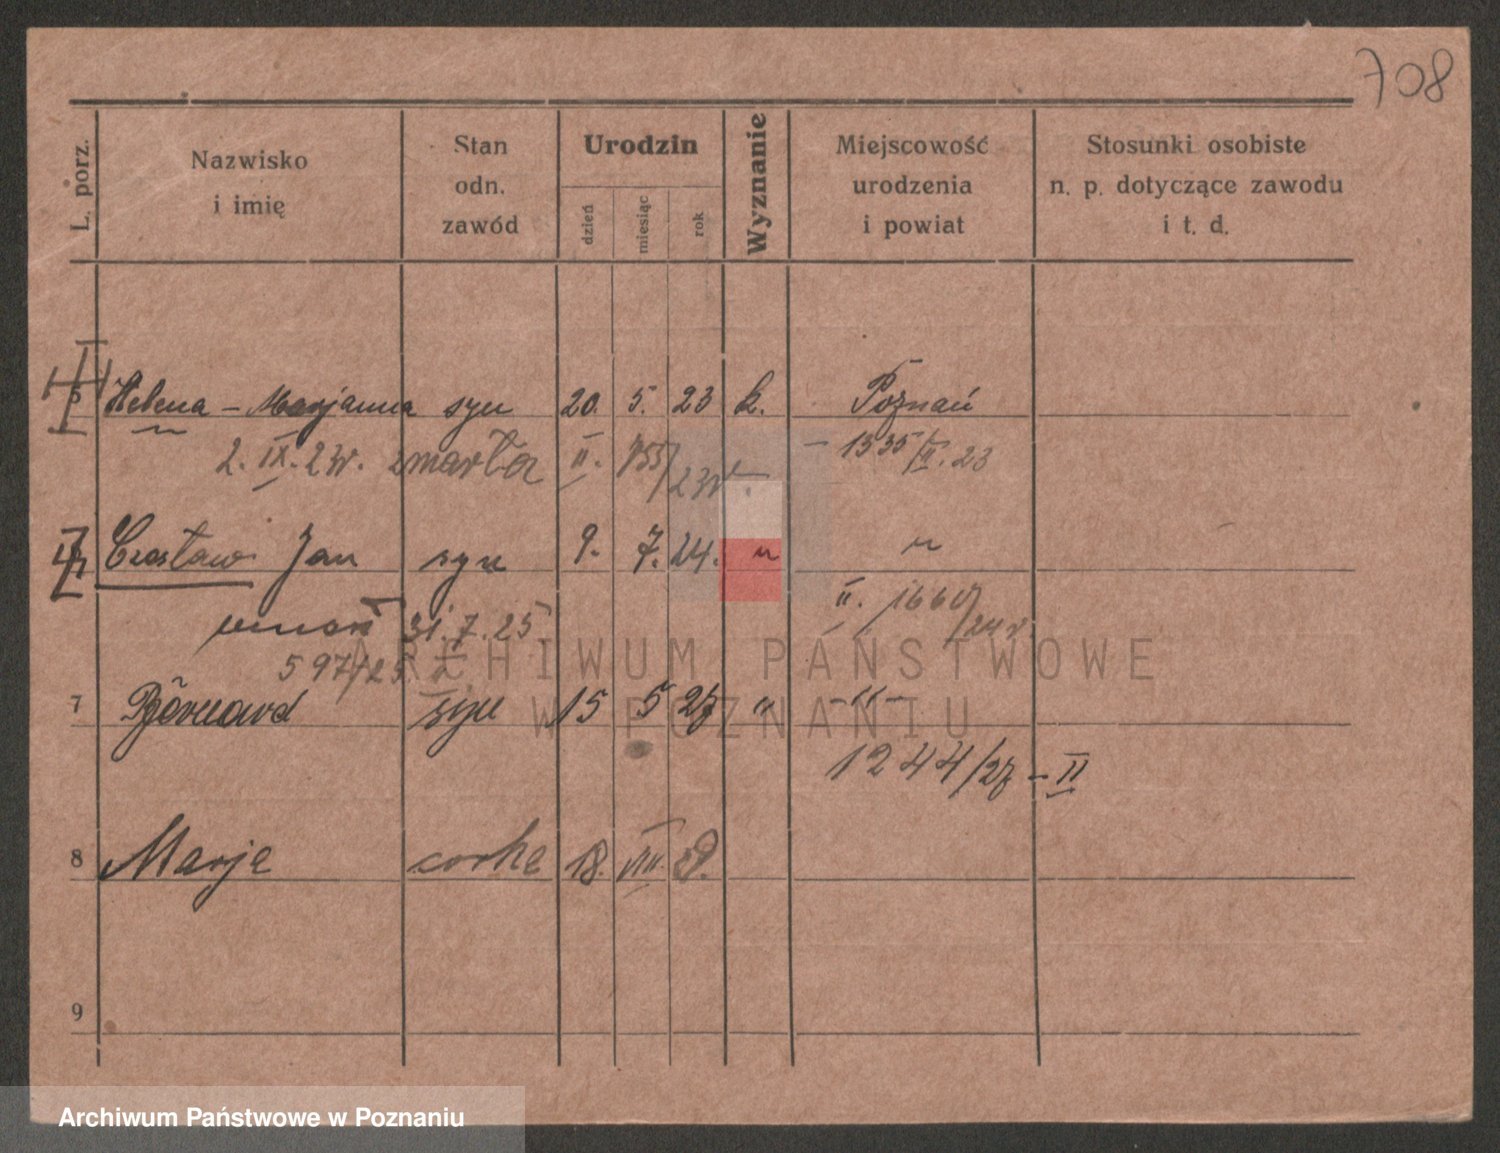 708
L. porz.
Nazwisko i imię
Stan odn. zawód
Urodzin
dzień miesiąc rok
Wyznanie
Miejscowość urodzenia i powiat
Stosunki osobiste n. p. dotyczące zawodu i t. d.
Helena - Marjanna syn 20. 5. 23 k. Poznań
2. IX. 23r. zmarła II. 755/23r. - 1335/II. 23
Czesław Jan syn 9. 7. 24. " "
II. 1660/24 r.
31.7.25
597/25
ARCHIWUM PAŃSTWOWE
7 syn 15 5 27 " -"-
W POZNANIU
1244/27 - II
8 Marja córka 18. VIII. 29.
9
Archiwum Państwowe w Poznaniu